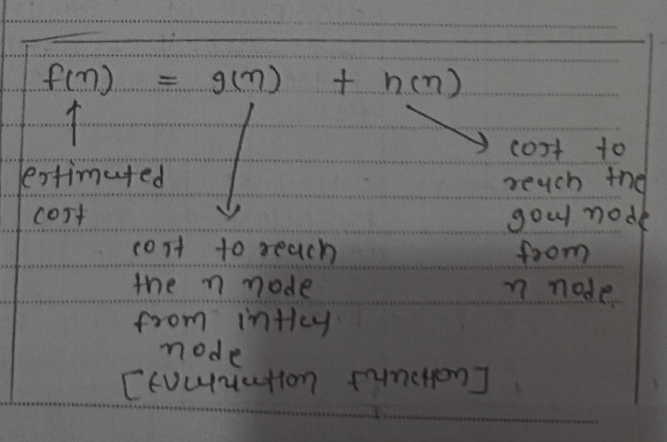 f(n) = g(n) + h(n)
estimated
cost
cost to reach
the n node
from initial
node
cost to
reach the
goal node
from
n node
[Evaluation function]